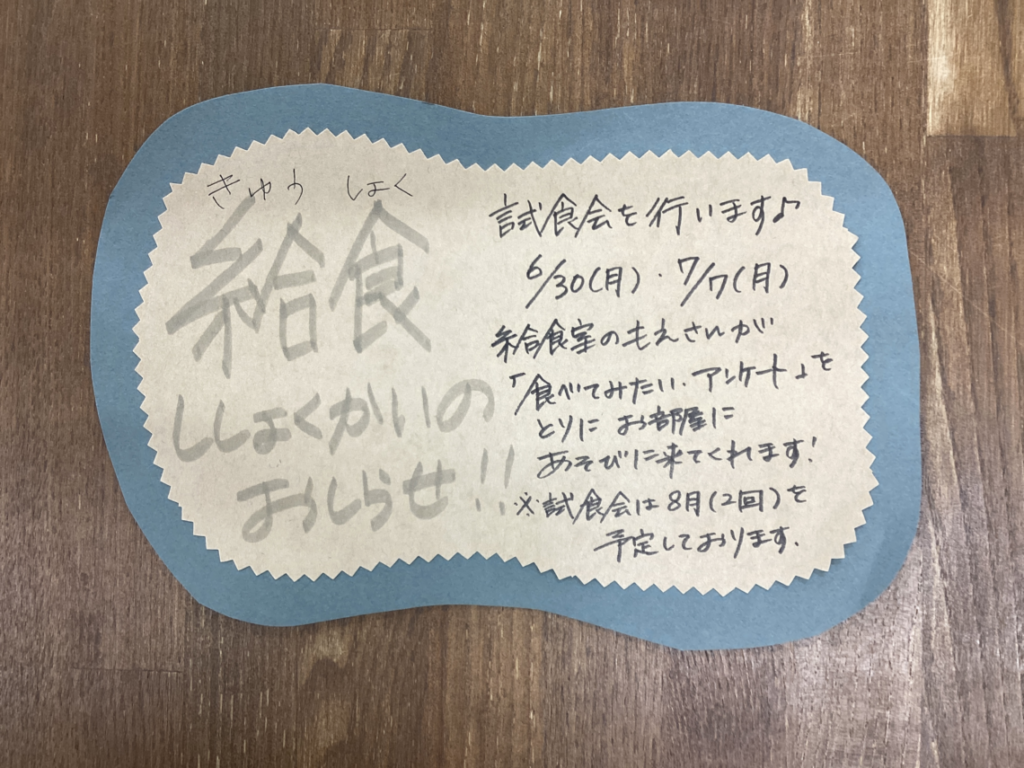 きゅう しょく
給食
ししょくかいの
おしらせ!!
試食会を行います♪
6/30(月)・7/7(月)
給食室のもえさんが
「食べてみたい・アンケート」を
とりに お部屋に
あそびに来てくれます!
※試食会は8月(2回)を
予定しております.